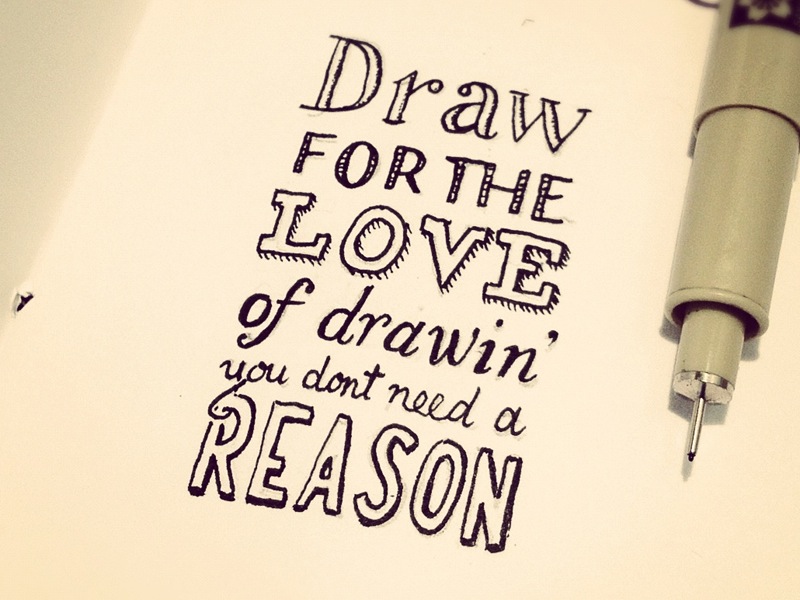 Draw
FOR THE
LOVE
of drawin'
you dont need a
REASON